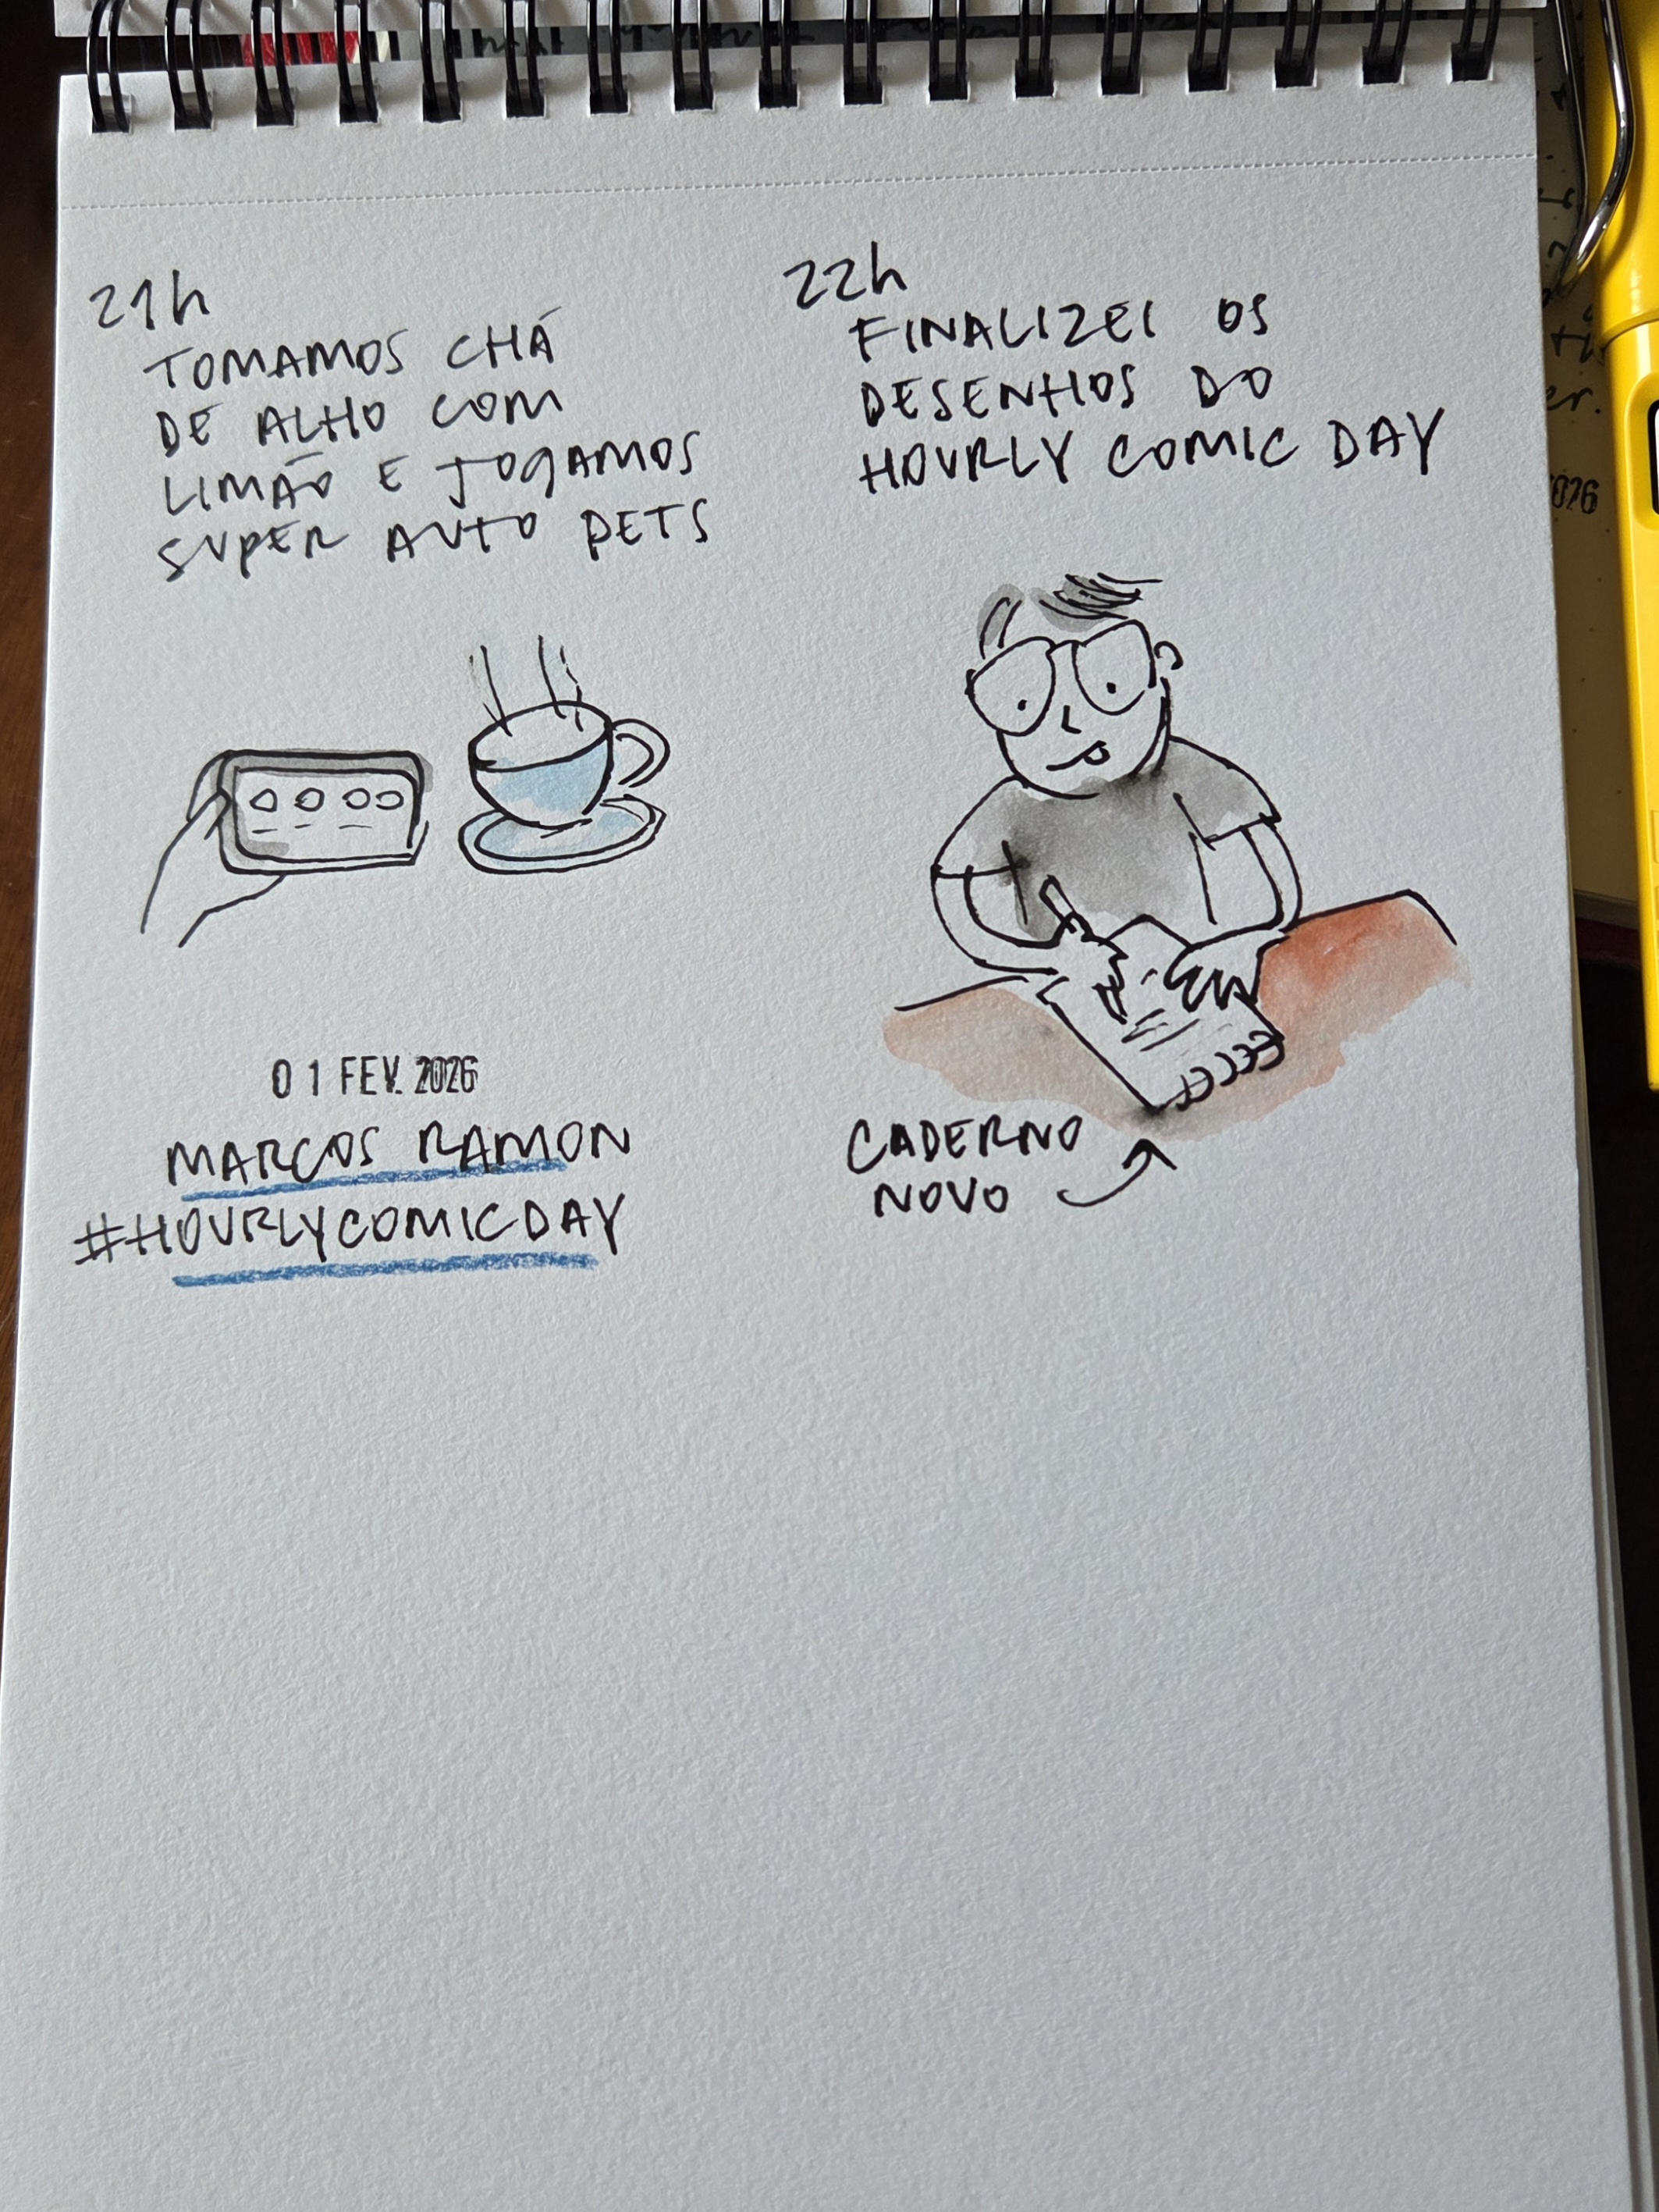 21h
TOMAMOS CHÁ
DE ALHO COM
LIMÃO E JOGAMOS
SUPER AUTO PETS
22h
FINALIZEI OS
DESENHOS DO
HOURLY COMIC DAY
CADERNO
NOVO
01 FEV. 2026
MARCOS RAMON
#HOURLYCOMICDAY
026
er.